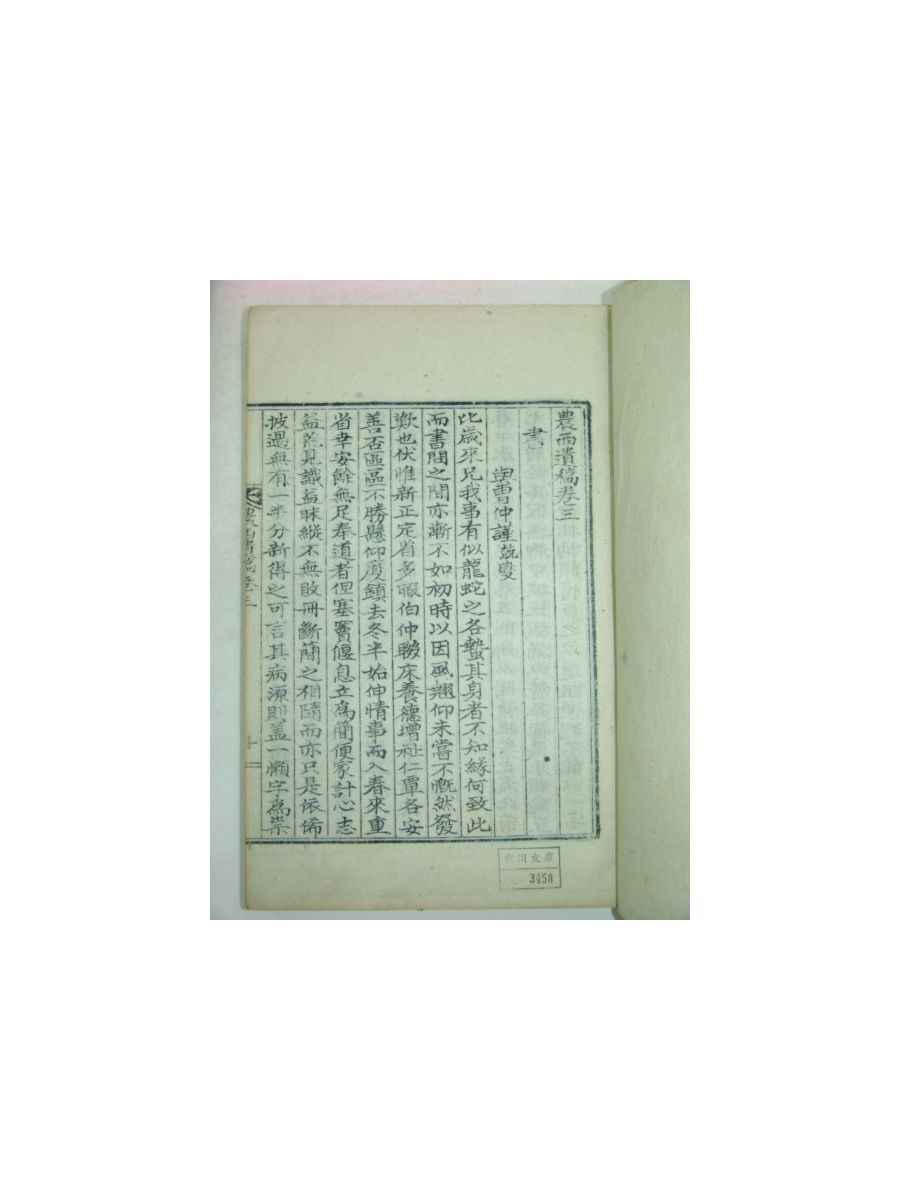 農西遺稿卷三
書
與曺仲謹兢燮
比歲來兄我事有似龍蛇之各蟄其身者不知緣何致此
而書問之間亦漸不如初時以因風翹仰未嘗不慨然發
歎也伏惟新正定省多暇伯仲聯床養德增祉仁覃各安
善否區區不勝懸仰廈鎭去冬半始伸情事而入春來重
省幸安餘無足奉道者但塞竇偃息立爲簡便家計心志
益荒見識益昧縱不無敗冊斷簡之相隨而亦只是依俙
披過無有一半分新得之可言其病源則盖一懶字爲祟
農西遺稿卷三
川文庫
3458